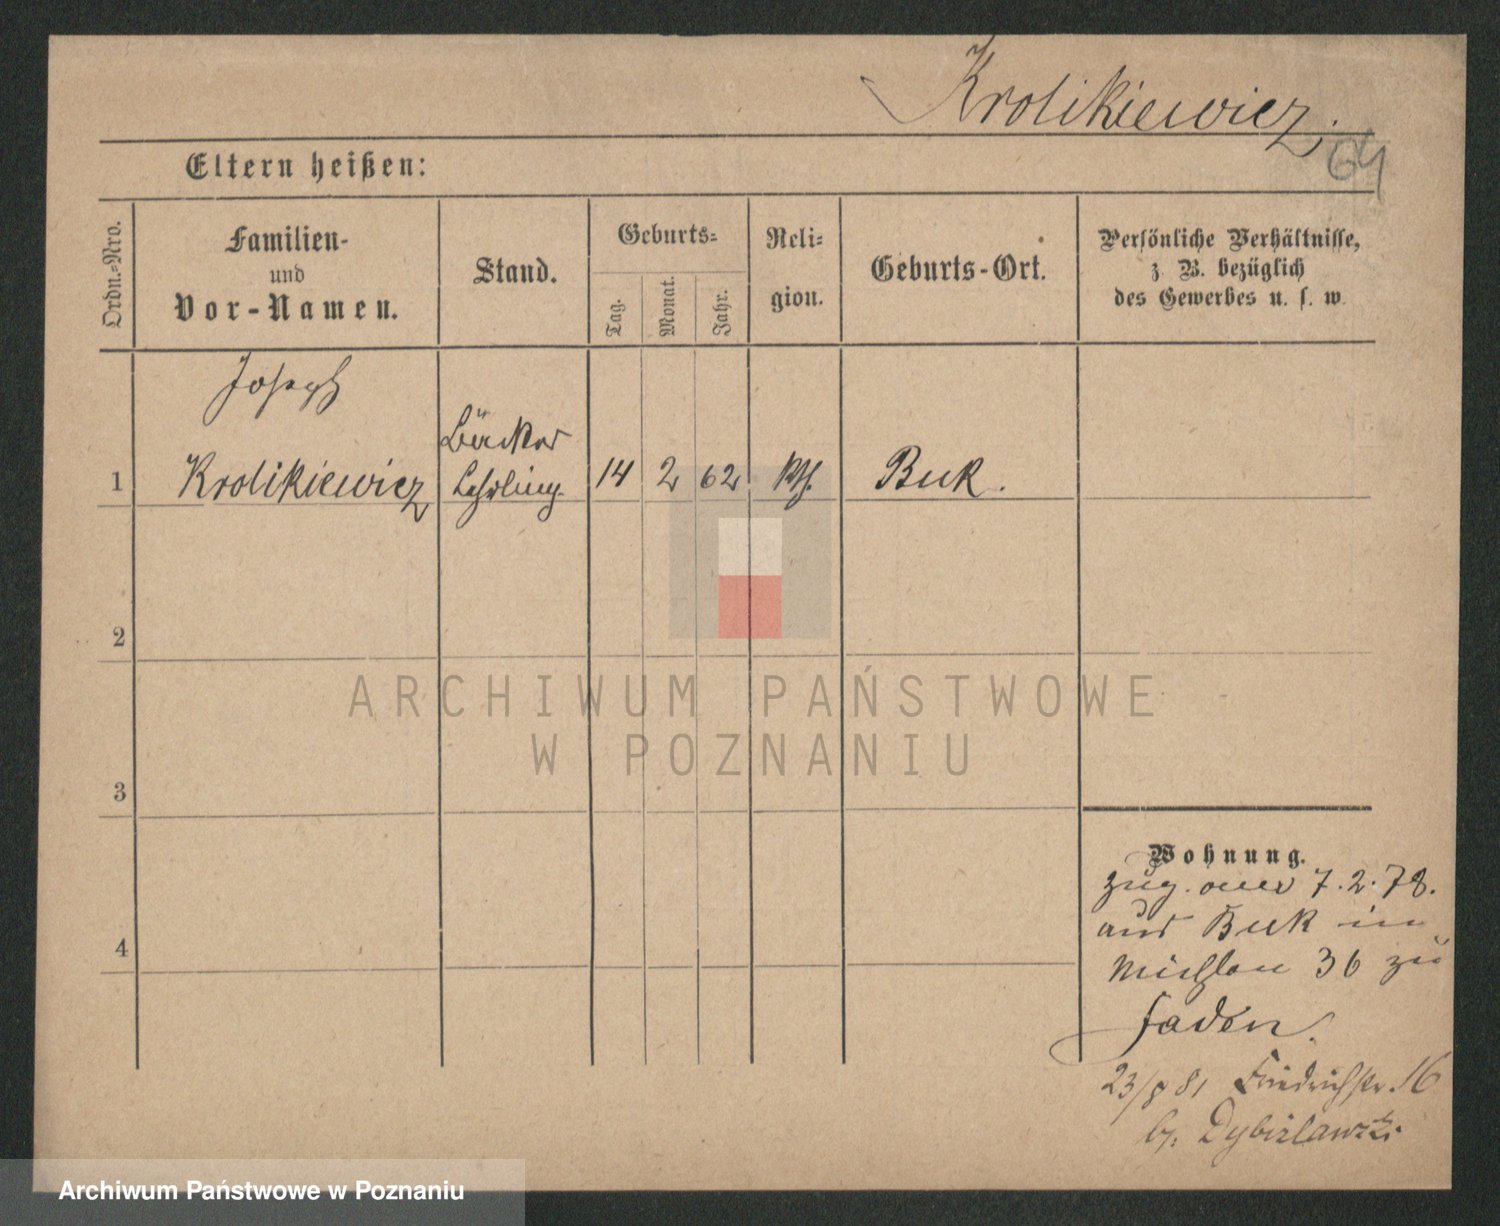 Krolikiewicz.
64
Eltern heißen:
Ordn.-Nro.
Familien-
und
Vor-Namen.
Stand.
Geburts-
Tag.
Monat.
Jahr.
Reli-
gion.
Geburts-Ort.
Persönliche Verhältnisse,
z. B. bezüglich
des Gewerbes u. s. w.
Joseph
Bäcker
1 Krolikiewicz Lehrling 14 2 62 kth. Buk.
2
ARCHIWUM PAŃSTWOWE
W POZNANIU
3
Wohnung.
zug. 7.2.78.
aus Buk in
4
36 zu
Jaden.
23/8 81 Friedrichstr. 16
b.
Archiwum Państwowe w Poznaniu